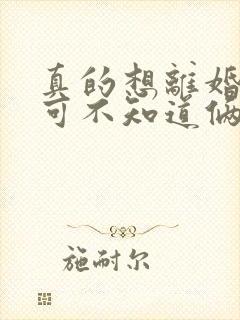 真的想離婚
可不知道俩
施耐尔